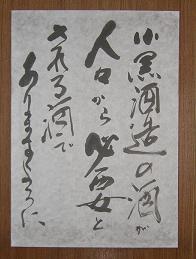 小黒酒造の酒が
人口から必要と
される酒で
ありますように